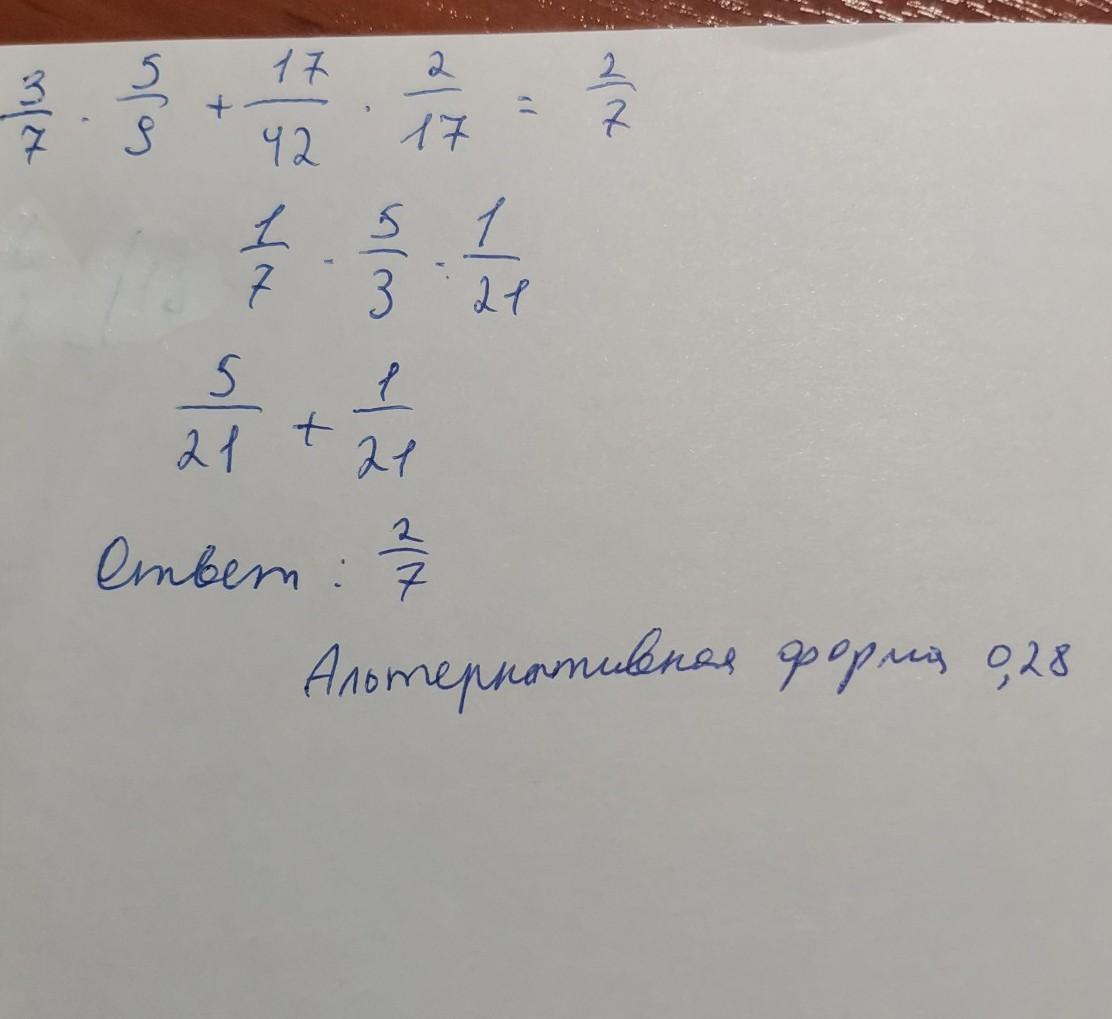 3/7 · 5/9 + 17/42 · 2/17 = 2/7
1/7 · 5/3 · 1/21
5/21 + 1/21
Ответ: 2/7
Альтернативная форма 0,28